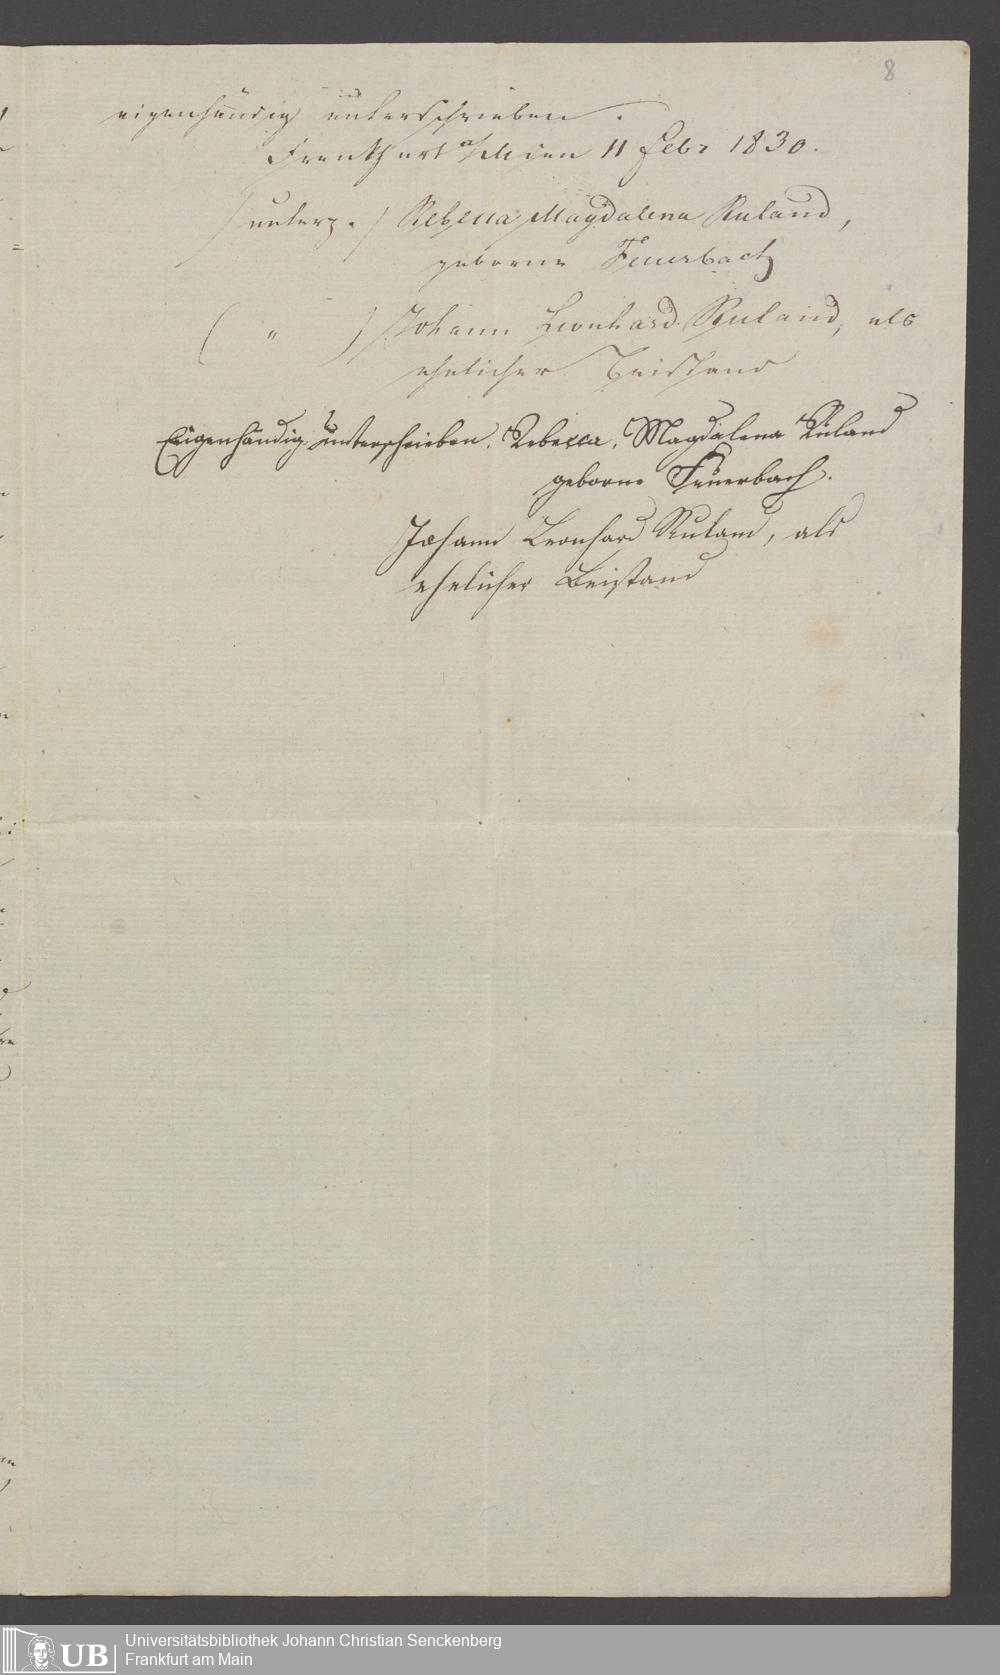 8
eigenhändig unterschrieben.
Frankfurt a/M den 11 Febr 1830.
(unterz.) Rebecca Magdalena Ruland,
geborne Feuerbach
( " ) Johann Leonhard Ruland, als
ehelicher Beistand
Eigenhändig unterschrieben. Rebecca, Magdalena Ruland
geborne Feuerbach.
Johann Leonhard Ruland, als
ehelicher Beistand
UB
Universitätsbibliothek Johann Christian Senckenberg
Frankfurt am Main